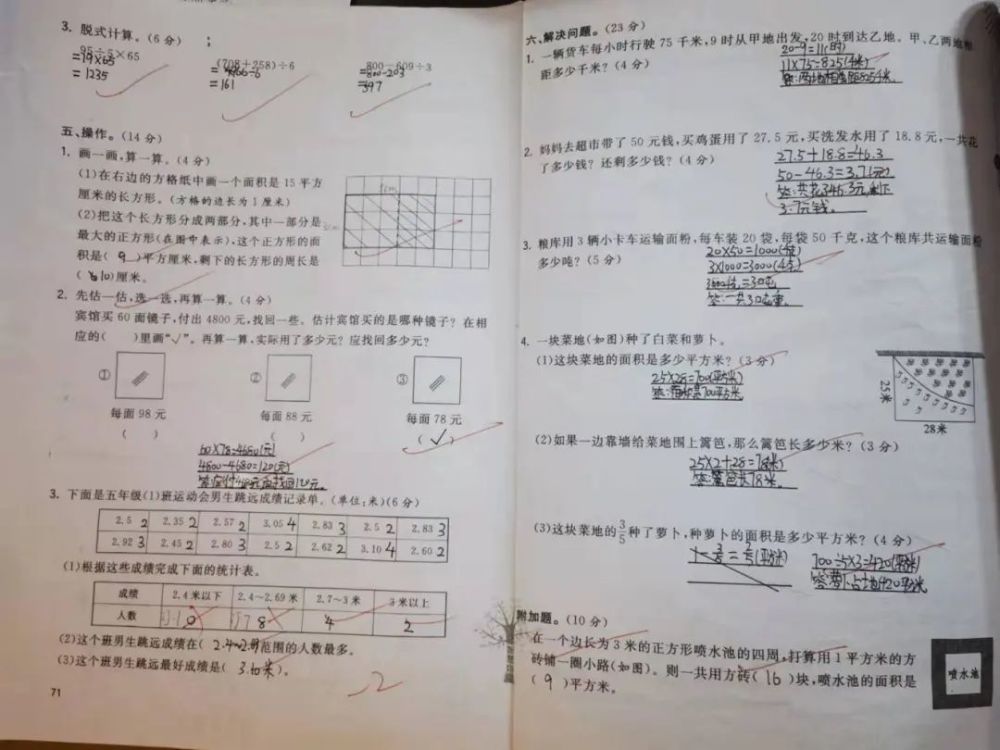 3. 脱式计算。(6 分)
95÷5×65
=19×65
=1235
(708+258)÷6
=161
800-609÷3
=800-203
=597
五、操作。(14 分)
1. 画一画,算一算。(4 分)
(1)在右边的方格纸中画一个面积是 15 平方
厘米的长方形。(方格的边长为 1 厘米)
(2)把这个长方形分成两部分,其中一部分是
最大的正方形(在图中表示),这个正方形的面
积是( 9 )平方厘米,剩下的长方形的周长是
( 10)厘米。
2. 先估一估,选一选,再算一算。(4 分)
宾馆买 60 面镜子,付出 4800 元,找回一些。估计宾馆买的是哪种镜子?在相
应的( )里画“√”。再算一算,实际用了多少元?应找回多少元?
① ② ③
每面 98 元 每面 88 元 每面 78 元
( ) ( ) ( ✓ )
60×78=4680(元)
4800-4680=120(元)
3. 下面是五年级(1)班运动会男生跳远成绩记录单。(单位:米)(6 分)
2.5 2 2.35 2 2.57 2 3.05 4 2.83 3 2.5 2 2.83 3
2.92 3 2.45 2 2.80 3 2.5 2 2.62 2 3.10 4 2.60 2
(1)根据这些成绩完成下面的统计表。
成绩 2.4 米以下 2.4~2.69 米 2.7~3 米 3 米以上
人数 0 8 4 2
(2)这个班男生跳远成绩在( 2.4~2.69)范围的人数最多。
(3)这个班男生跳远最好成绩是( 3.10米)。
71
-2
六、解决问题。(23 分)
1. 一辆货车每小时行驶 75 千米,9 时从甲地出发,20 时到达乙地。甲、乙两地相
距多少千米?(4 分)
20-9=11(时)
11×75=825(千米)
答:两地相距825千米。
2. 妈妈去超市带了 50 元钱,买鸡蛋用了 27.5 元,买洗发水用了 18.8 元,一共花
了多少钱?还剩多少钱?(4 分)
27.5+18.8=46.3
50-46.3=3.7(元)
答:共花了46.3元,剩下
3.7元钱。
3. 粮库用 3 辆小卡车运输面粉,每车装 20 袋,每袋 50 千克,这个粮库共运输面粉
多少吨?(5 分)
20×50=1000(千克)
3×1000=3000(千克)
4. 一块菜地(如图)种了白菜和萝卜。
(1)这块菜地的面积是多少平方米?(3 分)
25×28=700(平方米)
25米
28米
(2)如果一边靠墙给菜地围上篱笆,那么篱笆长多少米?(3 分)
25×2+28=78(米)
答:篱笆长78米。
(3)这块菜地的3/5种了萝卜,种萝卜的面积是多少平方米?(4 分)
700÷5×3=420(平方米)
答:萝卜占地420平方米
附加题。(10 分)
在一个边长为 3 米的正方形喷水池的四周,打算用 1 平方米的方
砖铺一圈小路(如图)。则一共用方砖( 16 )块,喷水池的面积是
( 9 )平方米。
喷水池